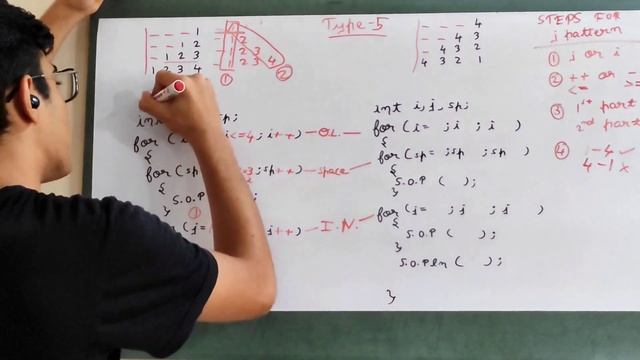 Type-5
– – – 1
– – 1 2
– 1 2 3
1 2 3 4
1
1 2
1 2 3
1 2 3 4
①
②
int sp;
for ( i<=4; i++) — O.L.
{
for (sp =3; sp++) — space
{
S.O.P
}
①
for (j= j++) — I.N.
– – – 4
– – 4 3
– 4 3 2
4 3 2 1
int i, j, sp;
for (i= ; i ; i )
{
for (sp= ; sp ; sp )
{
S.O.P ( );
}
for (j= ; j ; j )
{
S.O.P ( );
}
S.O.Pln ( );
}
STEPS FOR
j pattern
① j or i
② ++ or –
<= >=
③ 1st part
2nd part
④ 1–4 ✓
4–1 ×